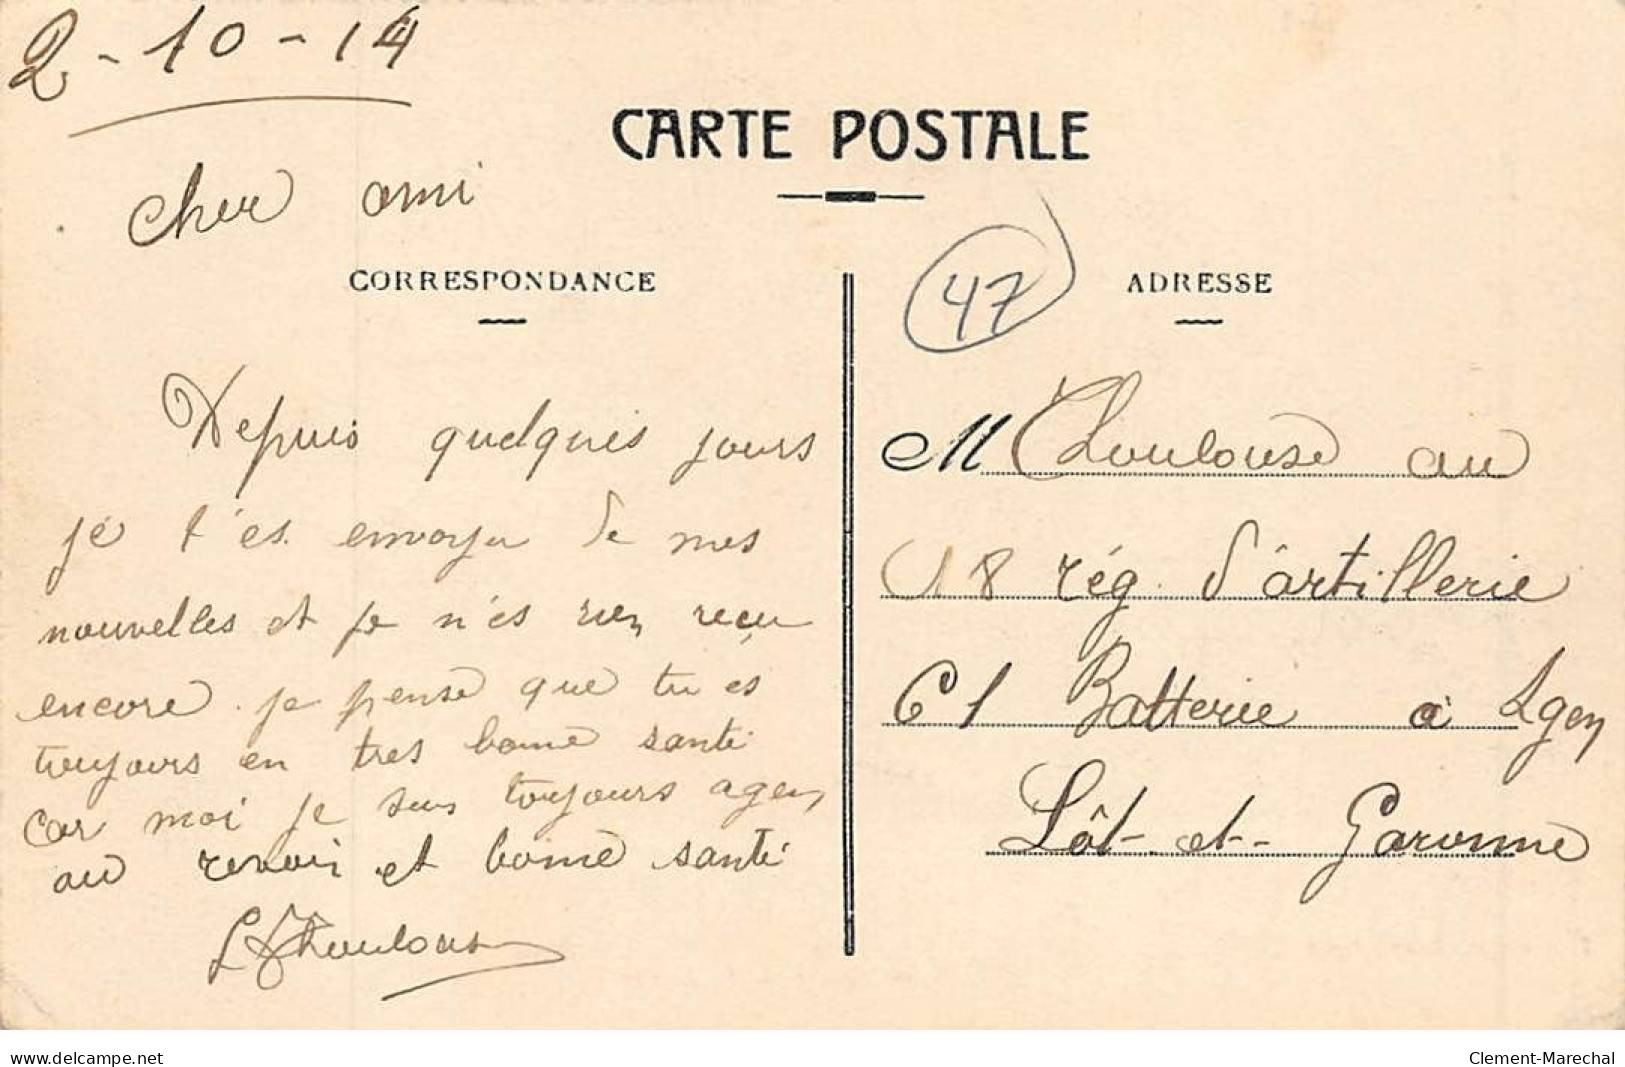 2-10-14
CARTE POSTALE
cher ami
CORRESPONDANCE
Depuis quelques jours
je t'es envoyer de mes
nouvelles et je n'es rien reçu
encore. je pense que tu es
toujours en tres bonne santé
car moi je suis toujours agen
au revoir et bonne santé
L Thoulouse
47
ADRESSE
M Thoulouse au
18 rég. d'artillerie
61 Batterie à Agen
Lôt-et-Garonne
delcampe.net
Clement-Marechal